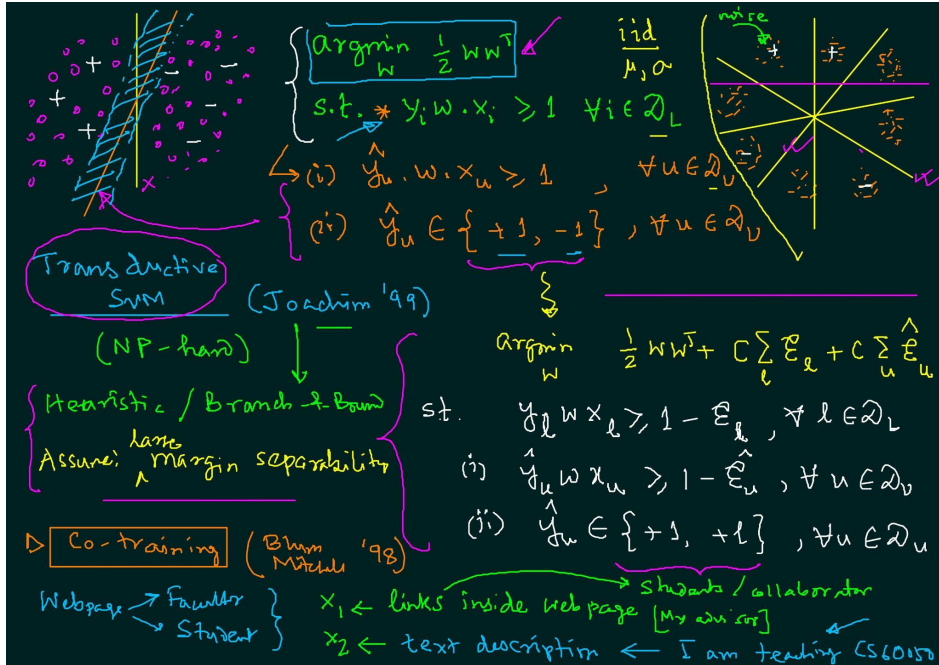 argmin ½ WWᵀ
W
s.t. * yᵢ w · xᵢ ≥ 1 ∀i ∈ D_L
iid
μ, σ
noise
(i) ŷᵤ · w · xᵤ ≥ 1 , ∀u ∈ D_U
(ii) ŷᵤ ∈ {+1, -1} , ∀u ∈ D_U
Transductive
SVM
(Joachim '99)
(NP-hard)
Heuristic / Branch-&-Bound
Assume: large margin separability
argmin ½ WWᵀ + C Σ_l ε_l + C Σ_u ε̂_u
W
st. y_l w x_l ≥ 1 - ε_l , ∀ l ∈ D_L
(i) ŷᵤ w xᵤ ≥ 1 - ε̂ᵤ , ∀ u ∈ D_U
(ii) ŷᵤ ∈ {+1, +1} , ∀u ∈ D_u
▷ Co-training (Blum Mitchell '98)
Webpage → Faculty
→ Student
x₁ ← links inside webpage → students / collaborator
[My advisor]
x₂ ← text description ← I am teaching CS60050